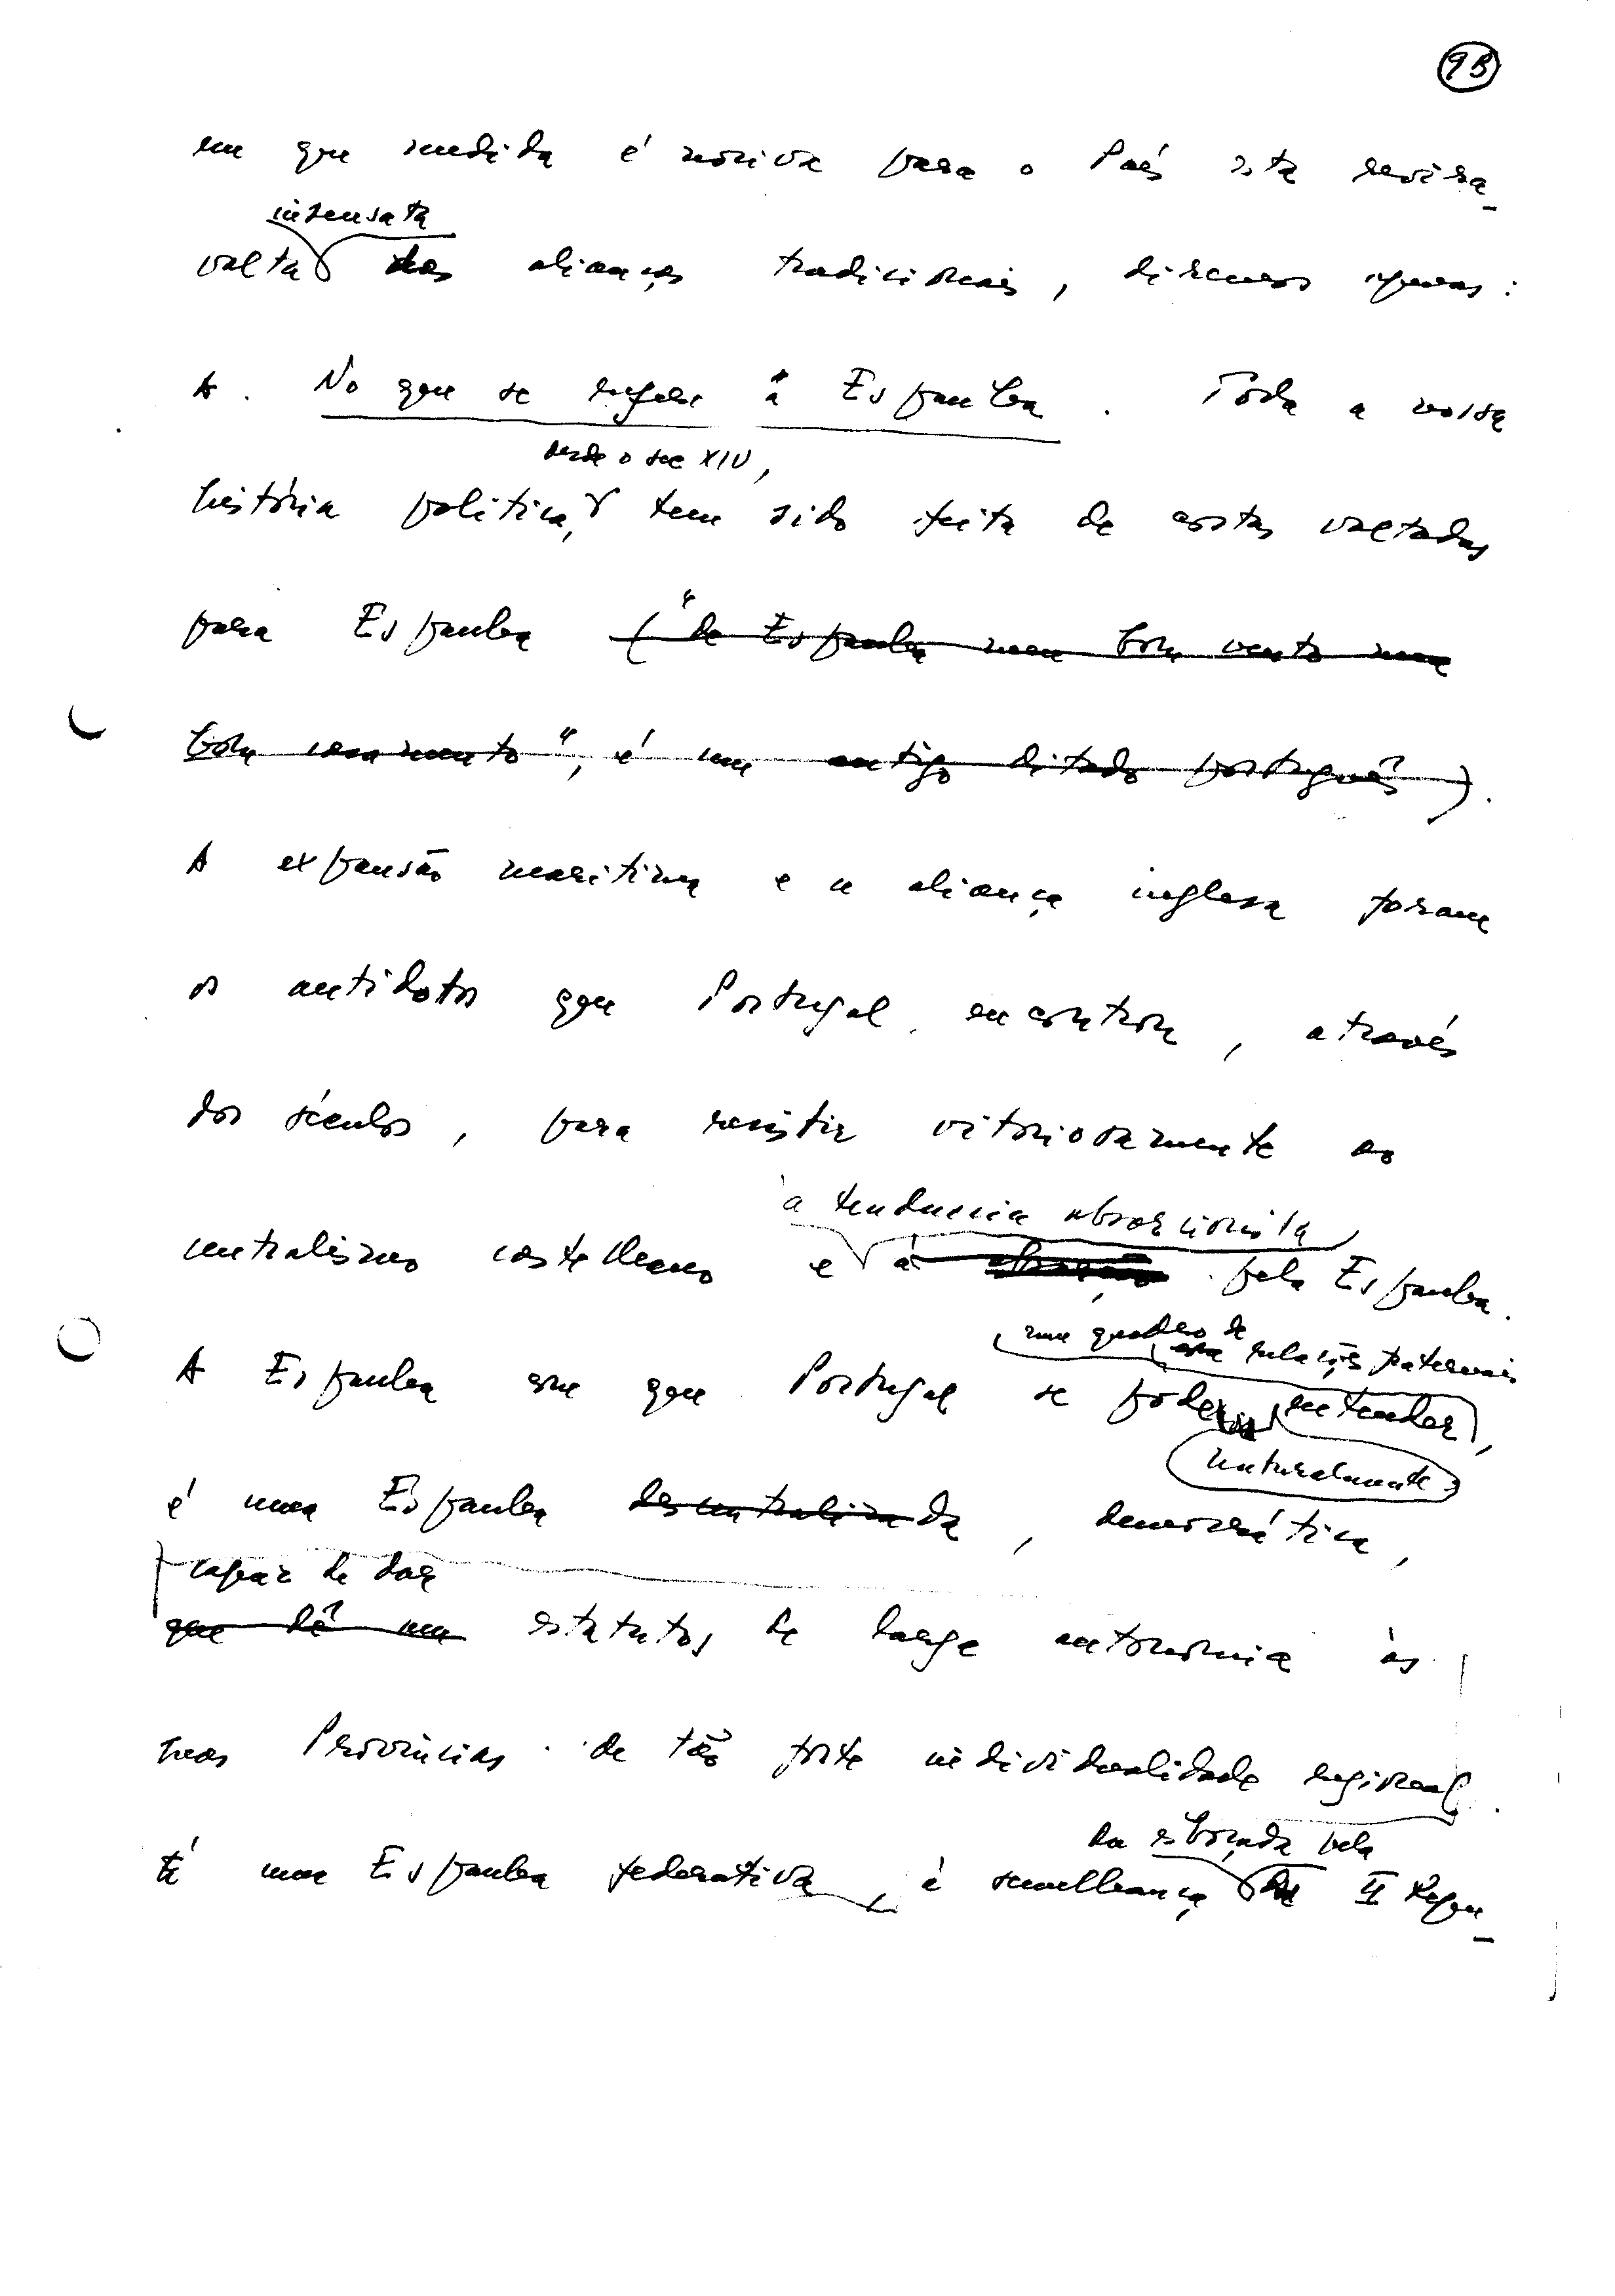 9B
em que medida é nociva para o País esta revira-
insensata
volta das alianças tradicionais, direcmos apenas:
A. No que se refere à Espanha. Toda a nossa
desde o sec XIV,
história politica, tem sido feita de costas voltadas
para Espanha ("de Espanha nem bom vento nem
bom casamento", é um antigo ditado português).
A expansão maritima e a aliança inglesa foram
os antidotos que Portugal encontrou, através
dos séculos, para resistir vitoriosamente ao
à tendencia absorcionista
centralismo castelhano e à absorção pela Espanha.
num quadro de relações fraternais
A Espanha com que Portugal se poderia entender,
naturalmente
é uma Espanha descentralizada, democrática,
capaz de dar
que dê um estatutos de larga autonomia às
suas Provincias de tão forte individualidade regional.
É uma Espanha federativa, à semelhança da II Repu-
da esboçada pela